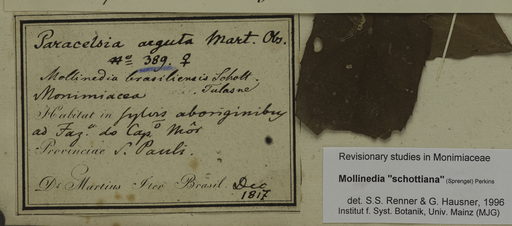 Paracelsia arguta Mart. Obs.
No 389. ♀
Mollinedia brasiliensis Schott.
Monimiacea Tulasne
Habitat in sylvis aboriginibus
ad Faz.a do Cap.o Môr
Provinciae S. Pauli.
Dr Martius Iter Brasil. Dec
1817
Revisionary studies in Monimiaceae
Mollinedia "schottiana" (Sprengel) Perkins
det. S.S. Renner & G. Hausner, 1996
Institut f. Syst. Botanik, Univ. Mainz (MJG)